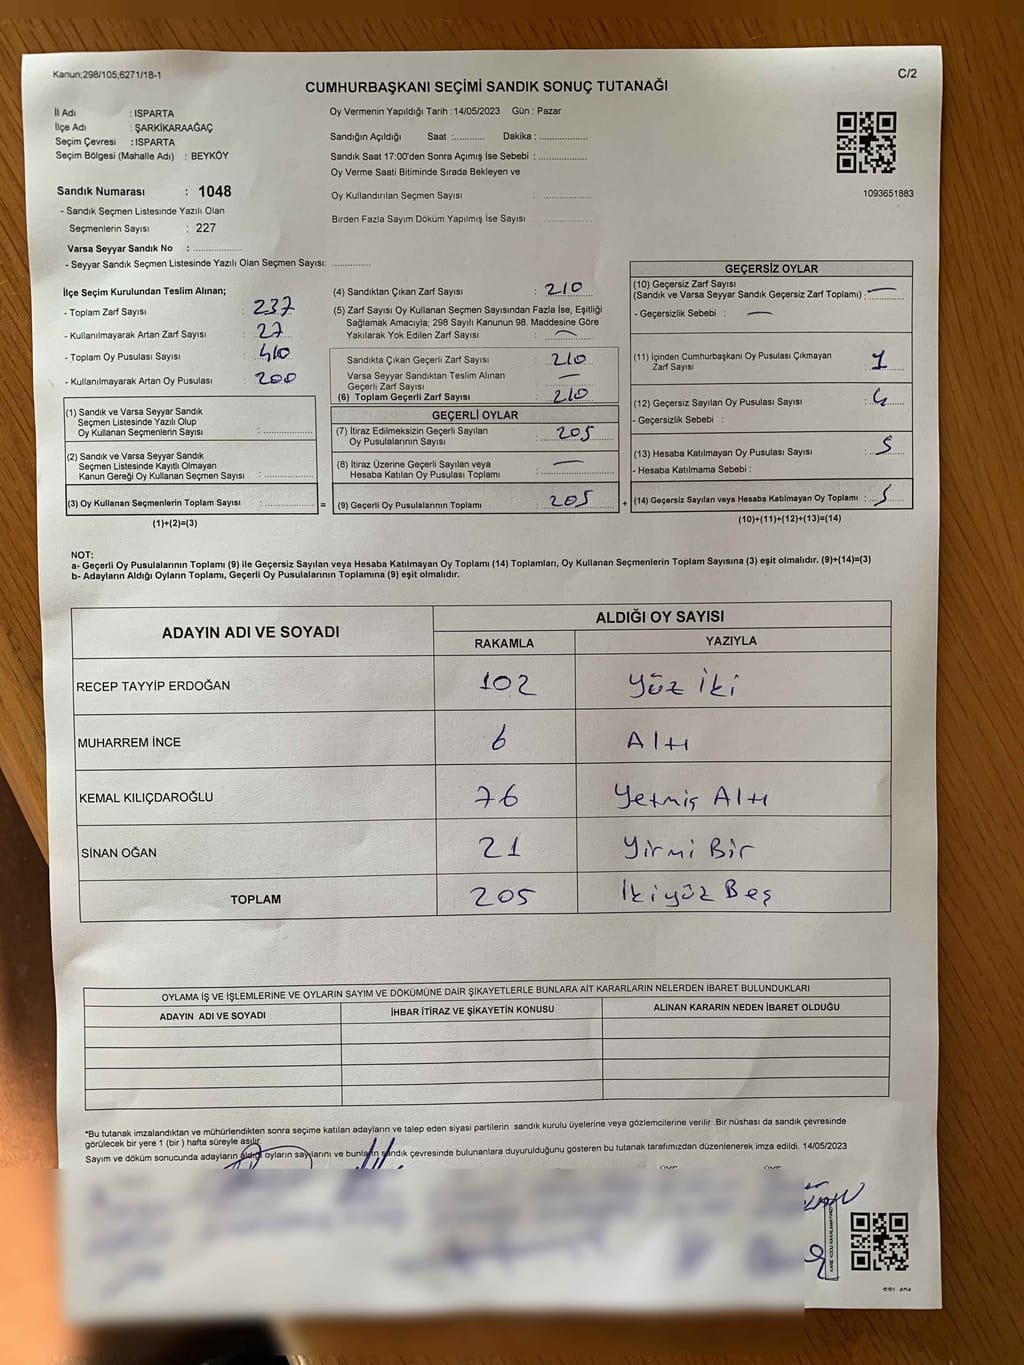 Kanun;298/105;6271/18-1
C/2
CUMHURBAŞKANI SEÇİMİ SANDIK SONUÇ TUTANAĞI
İl Adı : ISPARTA
İlçe Adı : ŞARKİKARAAĞAÇ
Seçim Çevresi : ISPARTA
Seçim Bölgesi (Mahalle Adı) : BEYKÖY
Sandık Numarası : 1048
- Sandık Seçmen Listesinde Yazılı Olan
Seçmenlerin Sayısı : 227
Varsa Seyyar Sandık No : ..............
- Seyyar Sandık Seçmen Listesinde Yazılı Olan Seçmen Sayısı: ..............
Oy Vermenin Yapıldığı Tarih : 14/05/2023 Gün : Pazar
Sandığın Açıldığı Saat :........... Dakika : ................
Sandık Saat 17:00'den Sonra Açımış İse Sebebi : ................
Oy Verme Saati Bitiminde Sırada Bekleyen ve
Oy Kullandırılan Seçmen Sayısı : ................
Birden Fazla Sayım Döküm Yapılmış İse Sayısı : ................
1093651883
İlçe Seçim Kurulundan Teslim Alınan;
- Toplam Zarf Sayısı : 237
- Kullanılmayarak Artan Zarf Sayısı : 27
- Toplam Oy Pusulası Sayısı : 410
- Kullanılmayarak Artan Oy Pusulası : 200
(1) Sandık ve Varsa Seyyar Sandık
Seçmen Listesinde Yazılı Olup
Oy Kullanan Seçmenlerin Sayısı : ................
(2) Sandık ve Varsa Seyyar Sandık
Seçmen Listesinde Kayıtlı Olmayan
Kanun Gereği Oy Kullanan Seçmen Sayısı : ................
(3) Oy Kullanan Seçmenlerin Toplam Sayısı : ................ =
(1)+(2)=(3)
(4) Sandıktan Çıkan Zarf Sayısı : 210
(5) Zarf Sayısı Oy Kullanan Seçmen Sayısından Fazla İse, Eşitliği
Sağlamak Amacıyla; 298 Sayılı Kanunun 98. Maddesine Göre
Yakılarak Yok Edilen Zarf Sayısı : —
Sandıkta Çıkan Geçerli Zarf Sayısı : 210
Varsa Seyyar Sandıktan Teslim Alınan
Geçerli Zarf Sayısı : —
(6) Toplam Geçerli Zarf Sayısı : 210
GEÇERLİ OYLAR
(7) İtiraz Edilmeksizin Geçerli Sayılan
Oy Pusulalarının Sayısı : 205
(8) İtiraz Üzerine Geçerli Sayılan veya
Hesaba Katılan Oy Pusulası Toplamı : —
(9) Geçerli Oy Pusulalarının Toplamı : 205 +
GEÇERSİZ OYLAR
(10) Geçersiz Zarf Sayısı
(Sandık ve Varsa Seyyar Sandık Geçersiz Zarf Toplamı) : —
- Geçersizlik Sebebi : —
(11) İçinden Cumhurbaşkanı Oy Pusulası Çıkmayan
Zarf Sayısı : 1
(12) Geçersiz Sayılan Oy Pusulası Sayısı : 4
- Geçersizlik Sebebi :
(13) Hesaba Katılmayan Oy Pusulası Sayısı : 5
- Hesaba Katılmama Sebebi :
(14) Geçersiz Sayılan veya Hesaba Katılmayan Oy Toplamı : 5
(10)+(11)+(12)+(13)=(14)
NOT:
a- Geçerli Oy Pusulalarının Toplamı (9) ile Geçersiz Sayılan veya Hesaba Katılmayan Oy Toplamı (14) Toplamları, Oy Kullanan Seçmenlerin Toplam Sayısına (3) eşit olmalıdır. (9)+(14)=(3)
b- Adayların Aldığı Oyların Toplamı, Geçerli Oy Pusulalarının Toplamına (9) eşit olmalıdır.
ADAYIN ADI VE SOYADI
ALDIĞI OY SAYISI
RAKAMLA YAZIYLA
RECEP TAYYİP ERDOĞAN 102 Yüz İki
MUHARREM İNCE 6 Altı
KEMAL KILIÇDAROĞLU 76 Yetmiş Altı
SİNAN OĞAN 21 Yirmi Bir
TOPLAM 205 İkiyüz Beş
OYLAMA İŞ VE İŞLEMLERİNE VE OYLARIN SAYIM VE DÖKÜMÜNE DAİR ŞİKAYETLERLE BUNLARA AİT KARARLARIN NELERDEN İBARET BULUNDUKLARI
ADAYIN ADI VE SOYADI İHBAR İTİRAZ VE ŞİKAYETİN KONUSU ALINAN KARARIN NEDEN İBARET OLDUĞU
*Bu tutanak imzalandıktan ve mühürlendikten sonra seçime katılan adayların ve talep eden siyasi partilerin sandık kurulu üyelerine veya gözlemcilerine verilir .Bir nüshası da sandık çevresinde
görülecek bir yere 1 (bir ) hafta süreyle asılır.
Sayım ve döküm sonucunda adayların aldığı oyların sayılarını ve bunların sandık çevresinde bulunanlara duyurulduğunu gösteren bu tutanak tarafımızdan düzenlenerek imza edildi. 14/05/2023